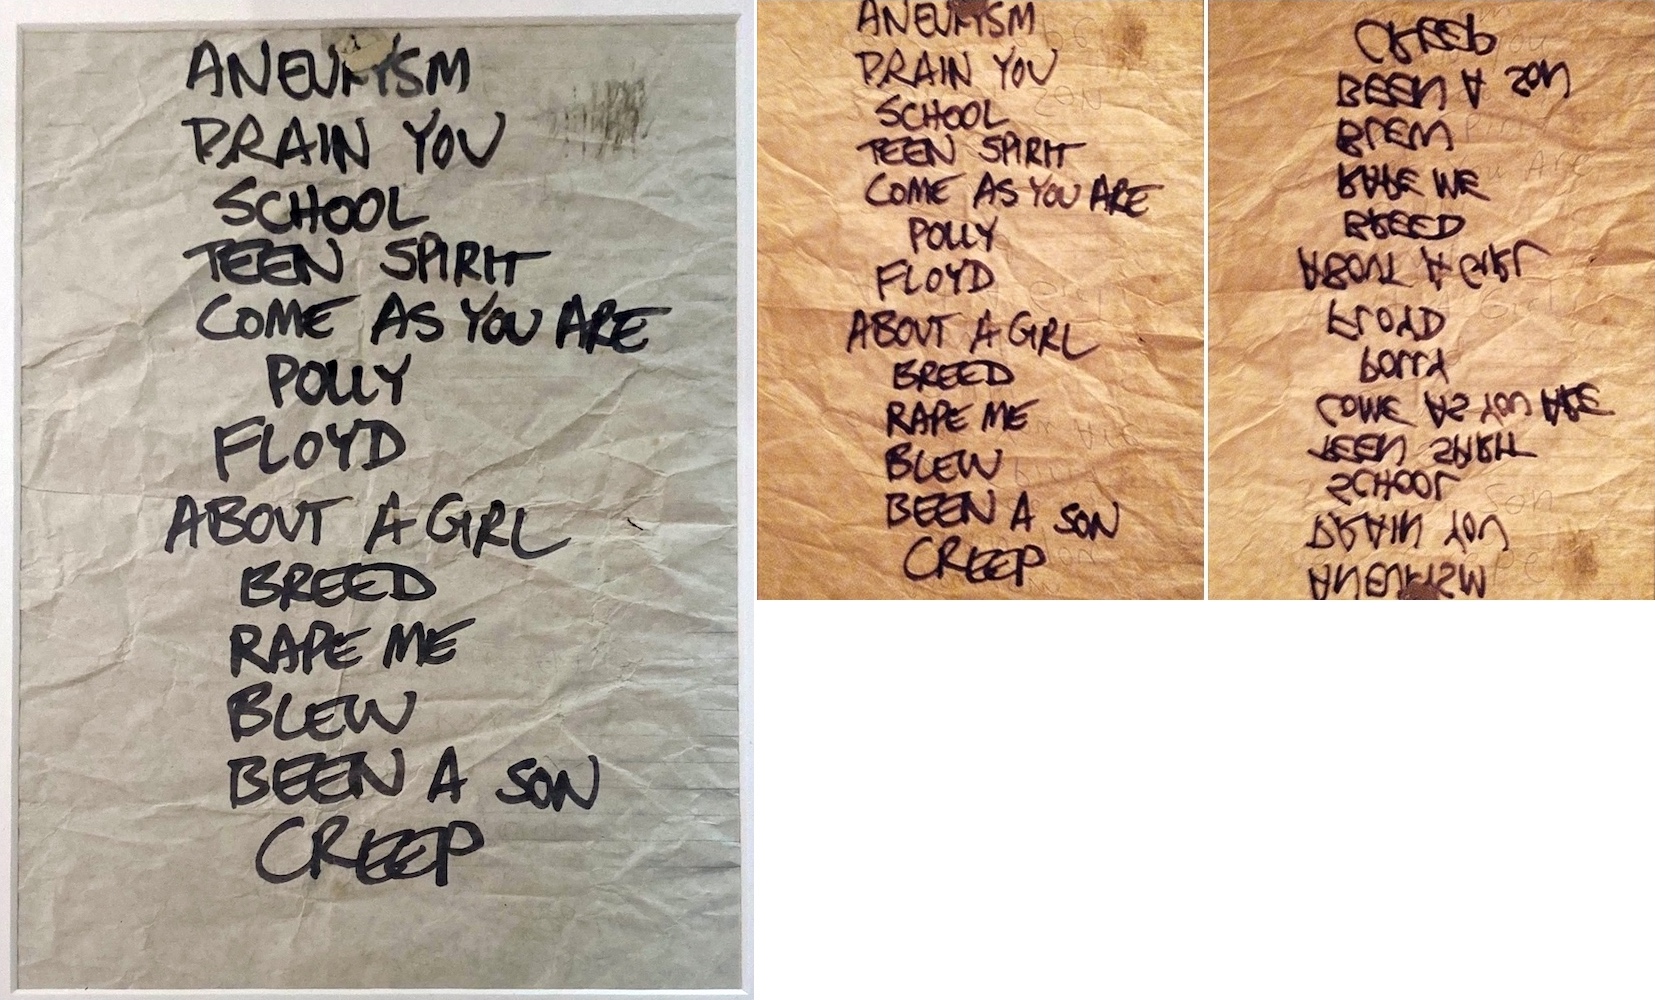 ANEURYSM
DRAIN YOU
SCHOOL
TEEN SPIRIT
COME AS YOU ARE
POLLY
FLOYD
ABOUT A GIRL
BREED
RAPE ME
BLEW
BEEN A SON
CREEP
ANEURYSM
DRAIN YOU
SCHOOL
TEEN SPIRIT
COME AS YOU ARE
POLLY
FLOYD
ABOUT A GIRL
BREED
RAPE ME
BLEW
BEEN A SON
CREEP
CREEP
BEEN A SON
BLEW
RAPE ME
BREED
ABOUT A GIRL
FLOYD
POLLY
COME AS YOU ARE
TEEN SPIRIT
SCHOOL
DRAIN YOU
ANEURYSM